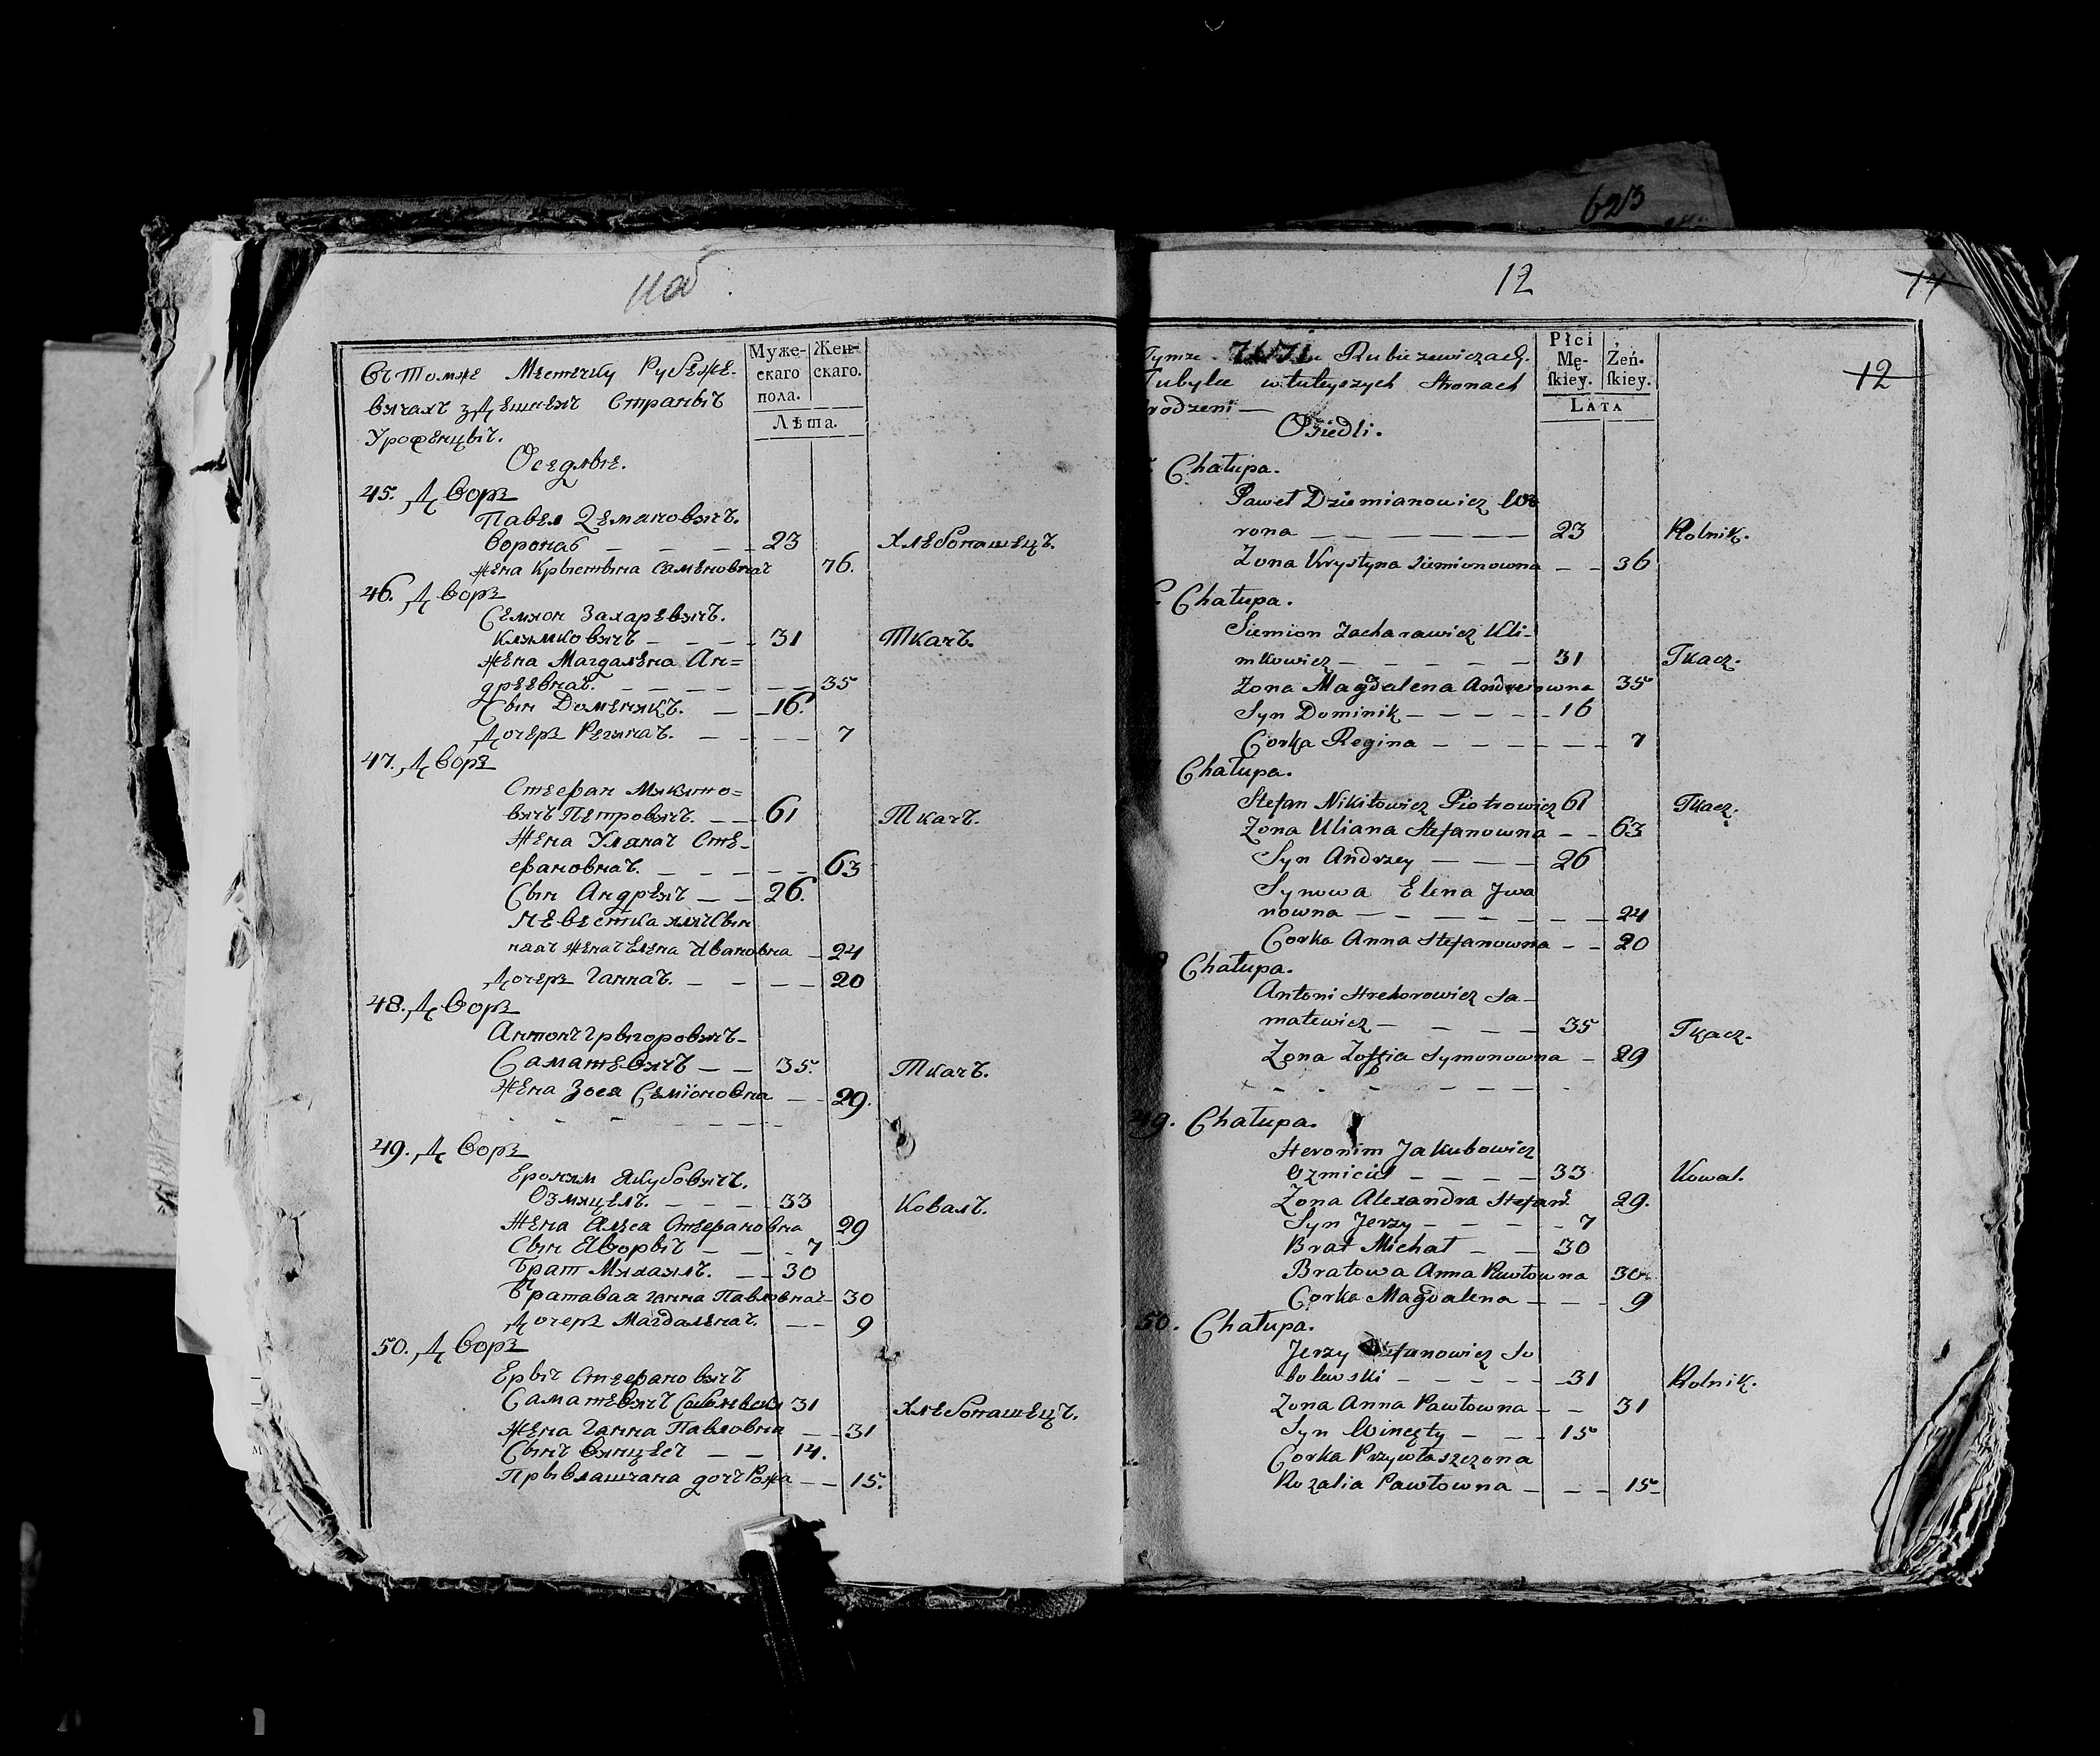 623
11об.
Въ Томже Местечку Рубеже-
вичахъ здешнехъ Странычъ
Уроженцы.
Оседлые.
Муже-
скаго
пола.
Жен-
скаго.
Лѣта.
45. Дворъ
Павел
Ворона — — — — 23 Хлебопашецъ.
Жена Крыстына Семеновна 76.
46. Дворъ
Семион Захаревичъ.
Климковичъ — — — — 31 Ткачъ.
Жена Магдалена Ан=
дреевна. — — — — — 35
Сын Доменикъ. — — 16.
Дочерь Регина. — — — — 7
47. Дворъ
Стефан Микито=
вичъ Петровичъ. — — 61 Ткачъ.
Жена Уляна Сте-
фановна. — — — — — 63
Сын Андрей — — 26.
Невестка
Жена Елена Ивановна — 24
Дочерь Ганна. — — — — 20
48. Дворъ
Антон Грыгоровичъ-
Саматевичъ — — 35. Ткачъ.
Жена Зося Семионовна — — 29.
49. Дворъ
Ероним Якубовичъ.
Озмицель. — — — — 33 Ковалъ.
Жена Алеса Стефановна 29
Сын — — - 7
Брат Михаилъ. — — 30
Братавая Ганна Павловна - 30
Дочерь Магдалена. — — 9
50. Дворъ
Стефановичъ
Саматевичъ 31 Хлебопашецъ.
Жена Ганна Павловна — — 31
Сынъ Винцесъ — — 14.
Прывлашчана дочъ — — 15.
12
14
12
Tymze Rubiezewiczach.
Tubylce w tuteyszych Stronach
rodzeni —
Osiedli.
Płci
Mę-
skiey.
Żeń-
skiey.
LATA
Chałupa.
Paweł Dziemianowicz Wo
rona — — — — — — 23 Rolnik.
Zona Krystyna Siemionowna — — 36
Chałupa.
Siemion Zacharawicz Kli-
mkowicz — — — — — 31 Tkacz.
Zona Magdalena Andrejowna 35
Syn Dominik — — — — - 16
Corka Regina — — — — — — 7
Chałupa.
Stefan Nikitowicz Piotrowicz 61 Tkacz.
Zona Uliana Stefanowna — — 63
Syn Andrzey — — — 26
Synowa Elena Jwa
nowna — — — — — — — 24
Corka Anna Stefanowna — — 20
Chałupa.
Antoni Hrehorowicz Sa-
matewicz — — — — 35 Tkacz.
Zona Zoffia Symonowna — 29
49. Chałupa.
Heronim Jakubowicz
Ozmiciel — — — — 33 Kowal.
Zona Alexandra Stefan. 29.
Syn Jerzy — — — — - 7
Brat Michał — — 30
Bratowa Anna Pawłowna 30
Corka Magdalena — — - 9
50. Chałupa.
Jerzy Stefanowicz So
bolewski — — — — — 31 Rolnik.
Zona Anna Pawłowna — — 31
Syn Wincęty — — — 15
Corka Przywłaszczona
Rozalia Pawłowna — — — 15